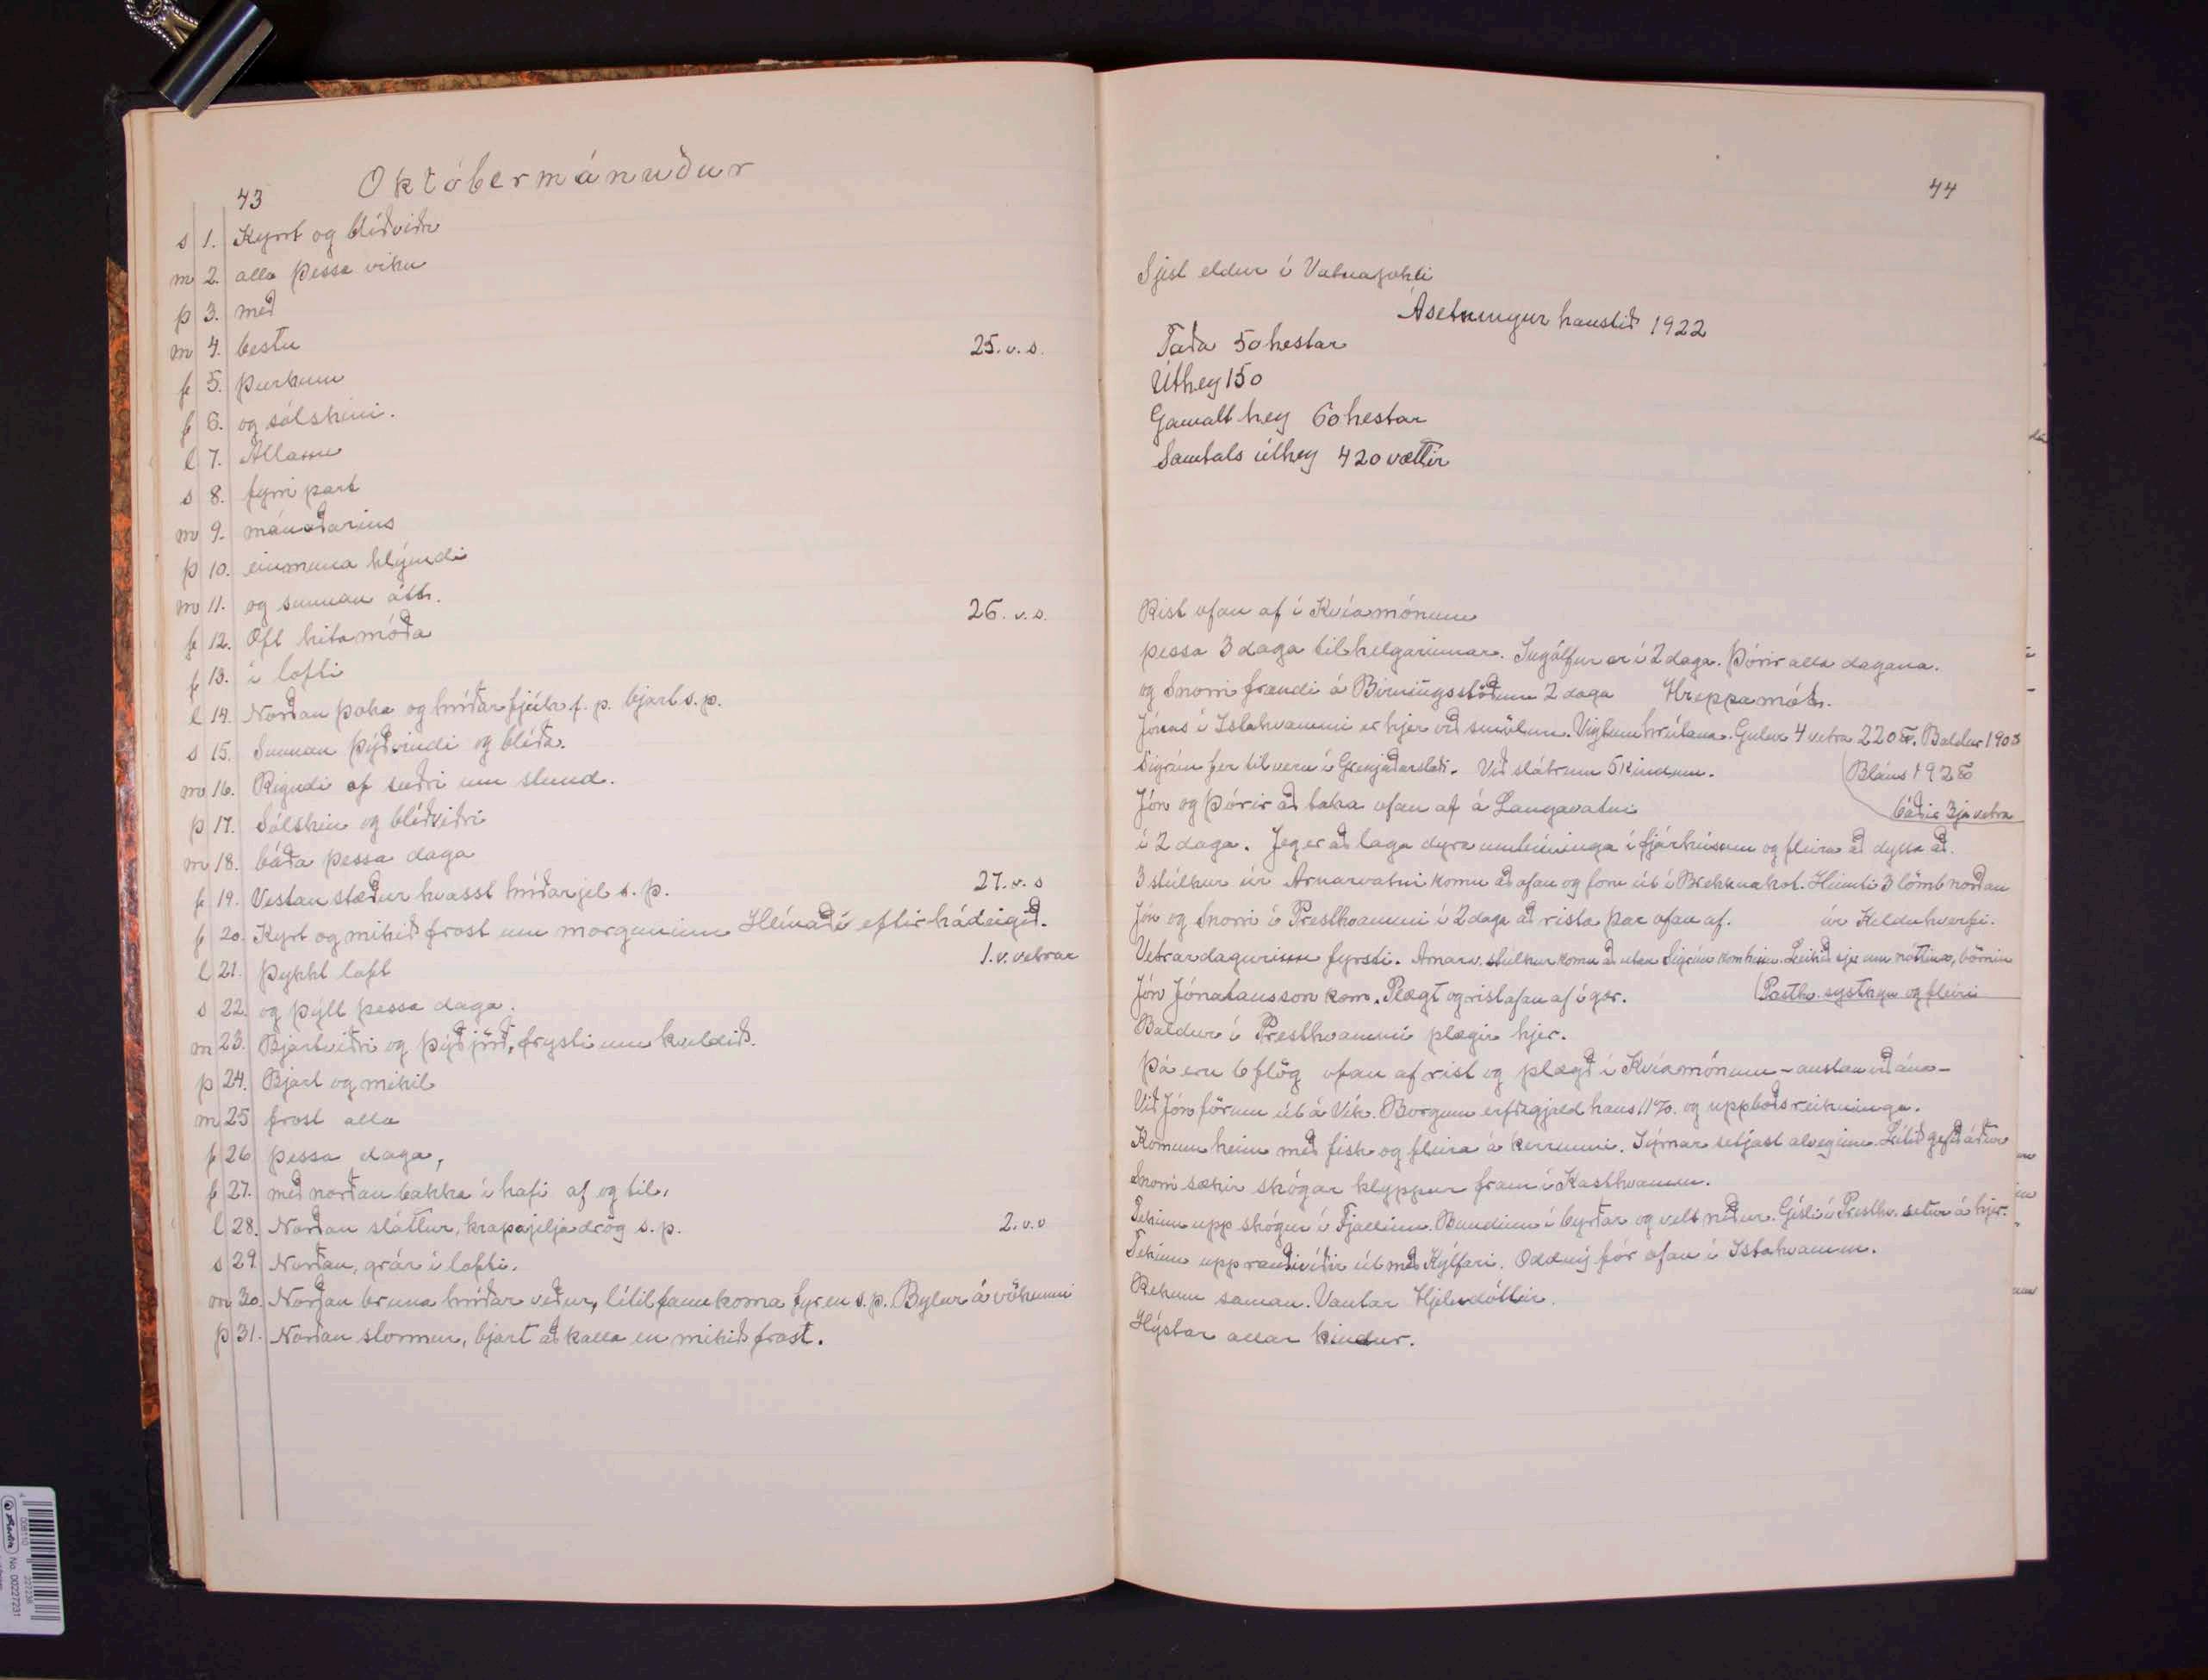 43
Októbermánuður
s 1. Kyrt og blíðviðri
m 2. alla þessa viku
þ 3. með
m 4. bestu 25. v. s.
f 5. þurkum
f 6. og sólskini.
l 7. Allann
s 8. fyrri part
m 9. mánaðarins
þ 10. einmuna hlýindi
m 11. og sunnan átt.
f 12. Oft hitamóða 26. v. s.
f 13. í lofti
l 14. Norðan þoka og hríðar fjúk f. p. bjart s. p.
s 15. Sunnan þýðvindi og blíða.
m 16. Rigndi af suðri um stund.
þ 17. Sólskin og blíðviðri
m 18. báða þessa daga
f 19. Vestan stæður hvasst hríðarjel s. p. 27. v. s
f 20. Kyrt og mikið frost um morguninn Hlínaði eftir hádeigið.
l 21. Þykkt loft 1. v. vetrar
s 22. og þýtt þessa daga.
m 23. Bjartviðri og þýð jörð, frysti um kveldið.
þ 24. Bjart og mikil
m 25 frost alla
f 26 þessa daga,
f 27. með norðan bakka í hafi af og til.
l 28. Norðan sláttur, krapajeljadrög s. p. 2. v. v
s 29. Norðan, grár í lofti.
m 30. Norðan bruna hríðar veður, lítil fannkoma fyr en s. p. Bylur á vökunni
þ 31. Norðan stormur, bjart að kalla en mikið frost.
44
Sjest eldur í Vatnajökli
Ásetningur haustið 1922
Taða 50 hestar
Úthey 150
Gamalt hey 60 hestar
Samtals úthey 420 vættir
Rist ofan af í Kvíamónum
þessa 3 daga til helgarinnar. Ingólfur er í 2 daga. Þórir alla dagana.
og Snorri frændi á Birningsstöðum 2 daga Hreppamót.
Jónas í Istahvammi er hjer við smölun. Vigtum hrútana. Gulur 4 vetra 220 ℔. Baldur 190
Sigrún fer til veru í Grenjaðarstað. Við slátrum 5 kindum. Bláus 192 ℔
Jón og Þórir að taka ofan af á Langavatni báðir 3ja vetra
í 2 daga. Jeg er að laga dyra umbúninga í fjárhúsum og fleira að dytta að.
3 stúlkur úr Arnarvatni komu að ofan og foru út í Brekknakot. Heimti 3 lömb norðan
Jón og Snorri í Presthvammi í 2 daga að rista þar ofan af. úr Kelduhverfi.
Vetrardagurinn fyrsti. Arnarv. stúlkur komu að utan Sigrún kom heim. um nóttina, börnin
Jón Jónatansson kom. Plægt og rist ofan af í gær. systkyn og fleiri
Baldur í Presthvammi plægir hjer.
Þá eru 6 flög ofan af rist og plægð í Kvíamónum - austan við ána -
Við Jón förum út á Vík. Borgum erfðagjald hans 11% og uppboðsreikninga.
Komum heim með fisk og fleira á kerrunni. setjast alveg inn. Lítið gefið áður
Snorri sækir skógar klyppur fram í Kasthvamm.
Tekinn upp skógur í Fjallinu. Bundinn í byrðar og velt niður. Gísli í Presthv. setur á hjer.
Tekinn upp rauðviðir út með Kýlfari. Oddný fór ofan í Istahvamm.
Rekum saman. Vantar
Hýstar allar kindur.